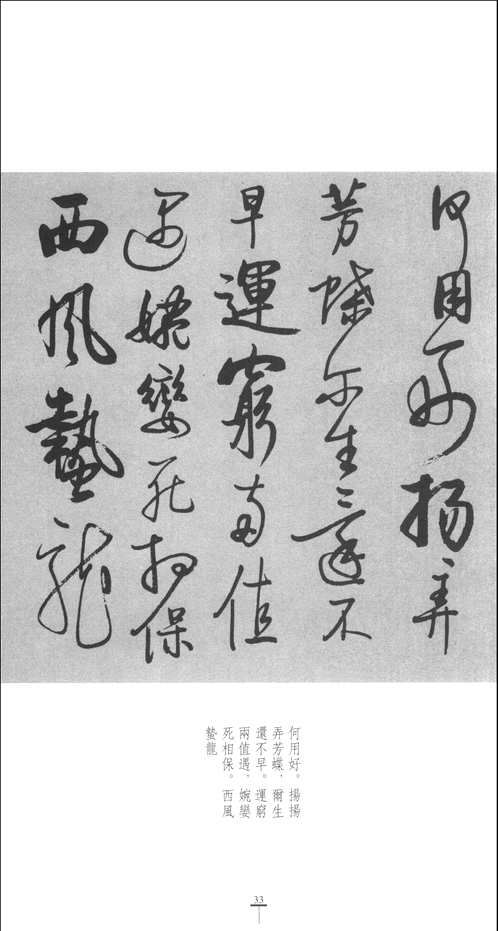 何用好扬々弄
芳蝶尔生還不
早運窮兩值
遇婉孌死相保
西風蟄龍
何用好。揚揚
弄芳蝶，爾生
還不早。運窮
兩值遇，婉孌
死相保。西風
蟄龍
33